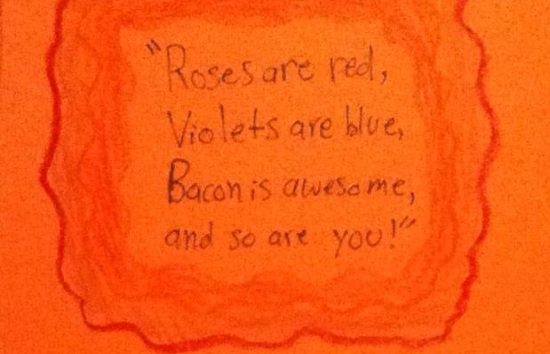 "Roses are red,
Violets are blue,
Bacon is awesome,
and so are you!"